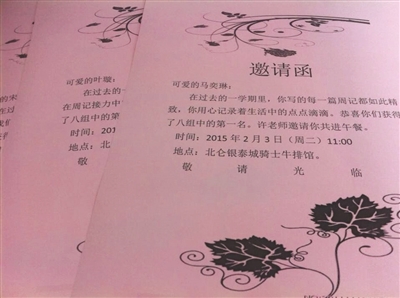 邀请函
可爱的马奕琳：
在过去的一学期里，你写的每一篇周记都如此精
致，你用心记录着生活中的点点滴滴。恭喜你们获得
了八组中的第一名。许老师邀请你共进午餐。
时间：2015 年 2 月 3 日（周二）11:00
地点：北仑银泰城骑士牛排馆。
敬 请 光 临
可爱的叶璇：
在过去的
在周记接力中
了八组中的第
时间：201
地点：北
敬
可爱的宋